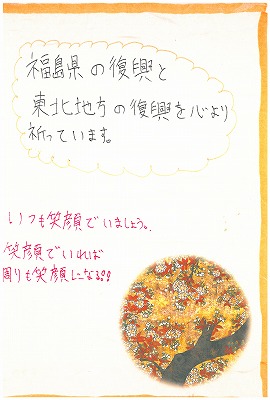 福島県の復興と
東北地方の復興を心より
祈っています。
いつも笑顔でいましょう。
笑顔でいれば
周りも笑顔になる!!